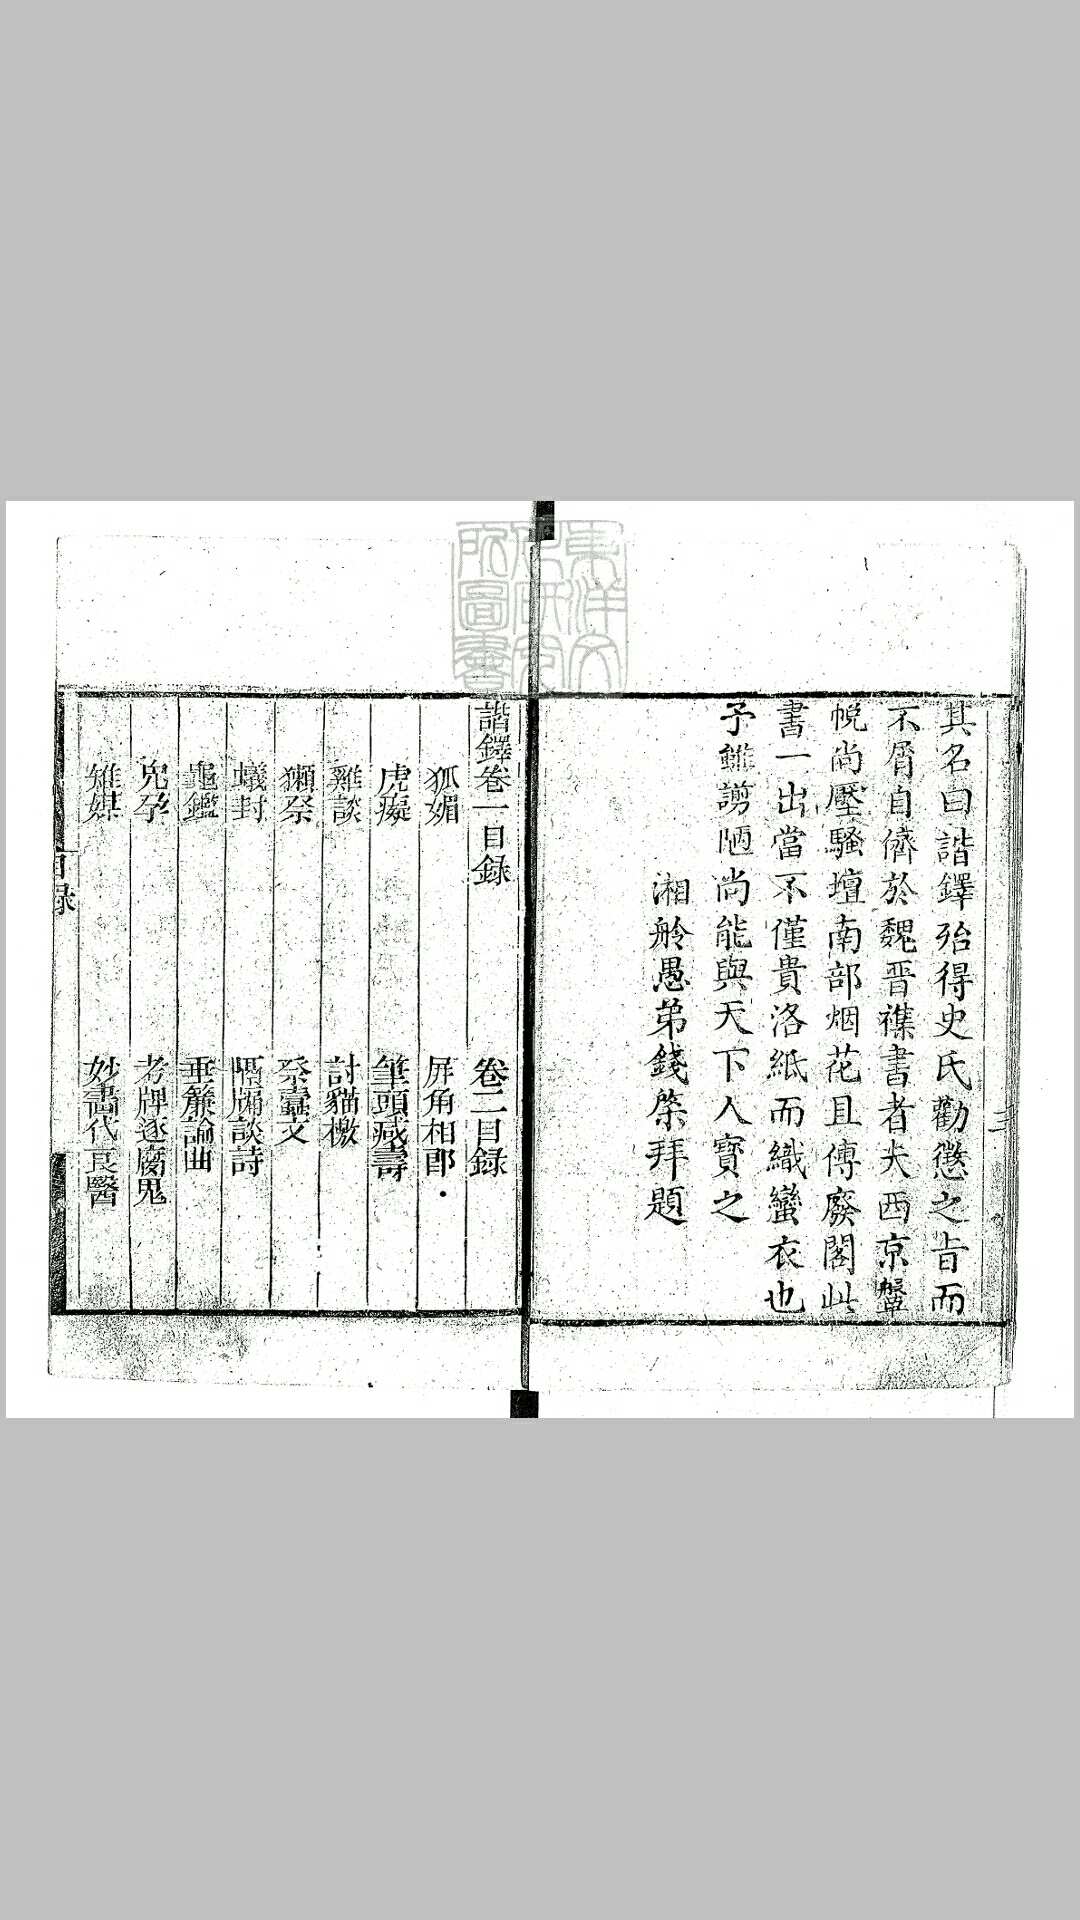 其名曰諧鐸殆得史氏勸懲之旨而
不屑自儕於魏晋襍書者夫西京鞶
帨尚壓騷壇南部烟花且傳廢閣此
書一出當不僅貴洛紙而織蠻衣也
予雖謭陋尚能與天下人寶之
湘舲愚弟錢棨拜題
諧鐸卷一目録
卷二目録
狐媚
屏角相郎
虎癡
筆頭減壽
雞談
討貓檄
獺祭
祭蠹文
蟻封
隔牖談詩
龜鑑
垂簾論曲
兕孕
考牌逐腐鬼
雉媒
妙畫代良醫
目録
東洋文化研究所圖書